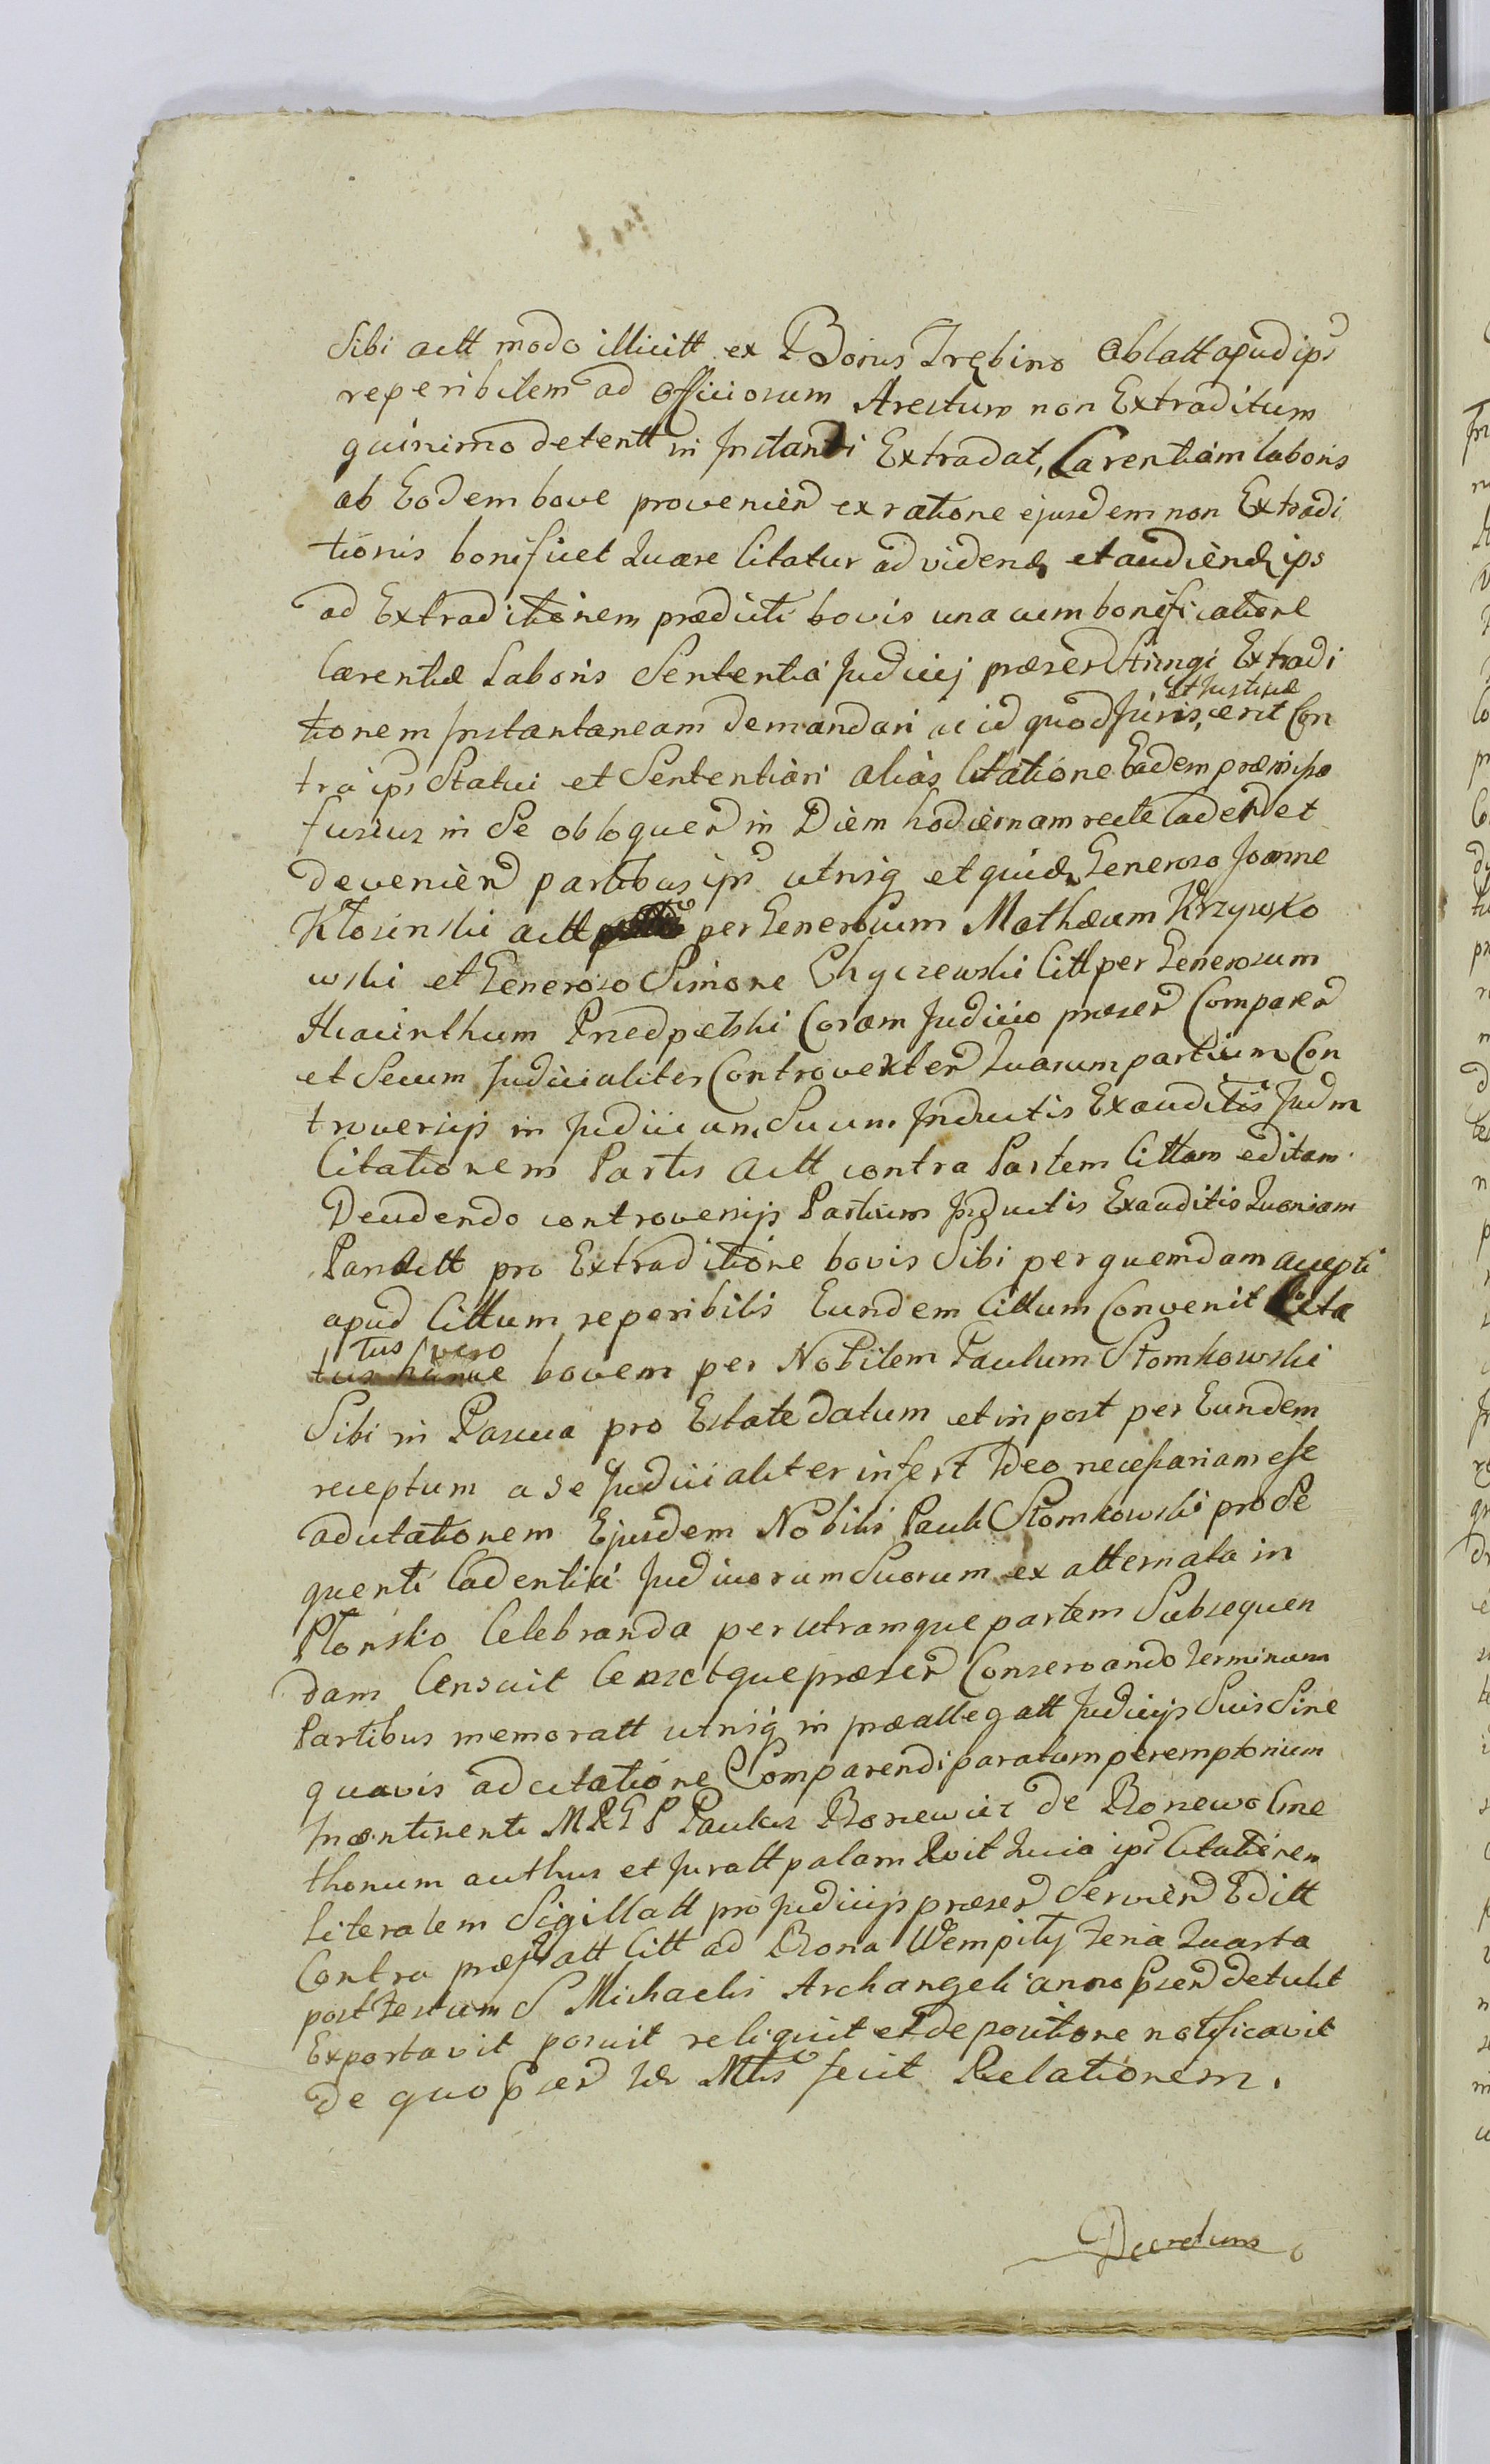 Sibi actt modo illicitt ex Bonis Trębino Ablatt apud ips
reperibilem ad officiosum Arestum non Extraditum
quinimo detentt in Instanti Extradat, Carentiam laboris
ab Eodem bove provenien ex ratione ejusdem non Extradi
tionis bonificet Quare Citatur ad videnđ et audienđ ips
ad Extraditionem prædicti bovis una cum bonificatione
Carentiæ Laboris Sententia Judicij præsen Stringi Extradi
tionem Instantaneam demandari ac id quod Juris et Justitiæ erit Con
tra ips Statui et Sententiari alias Citatione Eadem præmissa
fusius in Se obloquen in Diem hodiernam recte Caden et
devenien partibus ips utrisq et quidem Generoso Joanne
Kłosinski actt per Generosum Mathæum Krzywko
wski et Generoso Simone Chyczewski Citt per Generosum
Hiacinthum Przedpełski Coram Judicio præsen Comparen
et Secum Judicialiter Controverten Quarum partium Con
troversijs in Judicium Suum Inductis Exauditis Judm
Citationem Partis Actt contra Partem Cittam editam
Decidendo controversijs Partium Inductis Exauditis Quoniam
Pars Actt pro Extraditione bovis Sibi per quemdam accepti
apud Cittum reperibilis Eundem Cittum Convenit Cita
tus vero bovem per Nobilem Paulum Słomkowski
Sibi in Pascua pro Estate datum et in post per Eundem
receptum a se Judicialiter infert Ideo necessariam esse
adcitationem Ejusdem Nobilis Pauli Słomkowski pro Se
quenti Cadentia Judiciorum Suorum ex alternata in
Płońsko Celebranda per utramque partem Subsequen
dam Censuit Censetque præsen Conservando Terminum
Partibus memoratt utrisq in præallegatt Judicijs Suis Sine
quavis adcitatione Comparendi paratum peremptorium
Incontinenti MRGP Paulus Boniewicz de Boniewo Mne
thonum authus et Juratt palam Rvit Quia ips Citationem
Literalem Sigillatt pro Judicijs præsen Servien Editt
Contra præfatt Citt ad Bona Wempiły Feria Quarta
post Festum S Michaelis Archangeli anno præsen detulit
Exportavit posuit reliquit et de positione notificavit
de quo præsen Mtis fecit Relationem.
Decretum